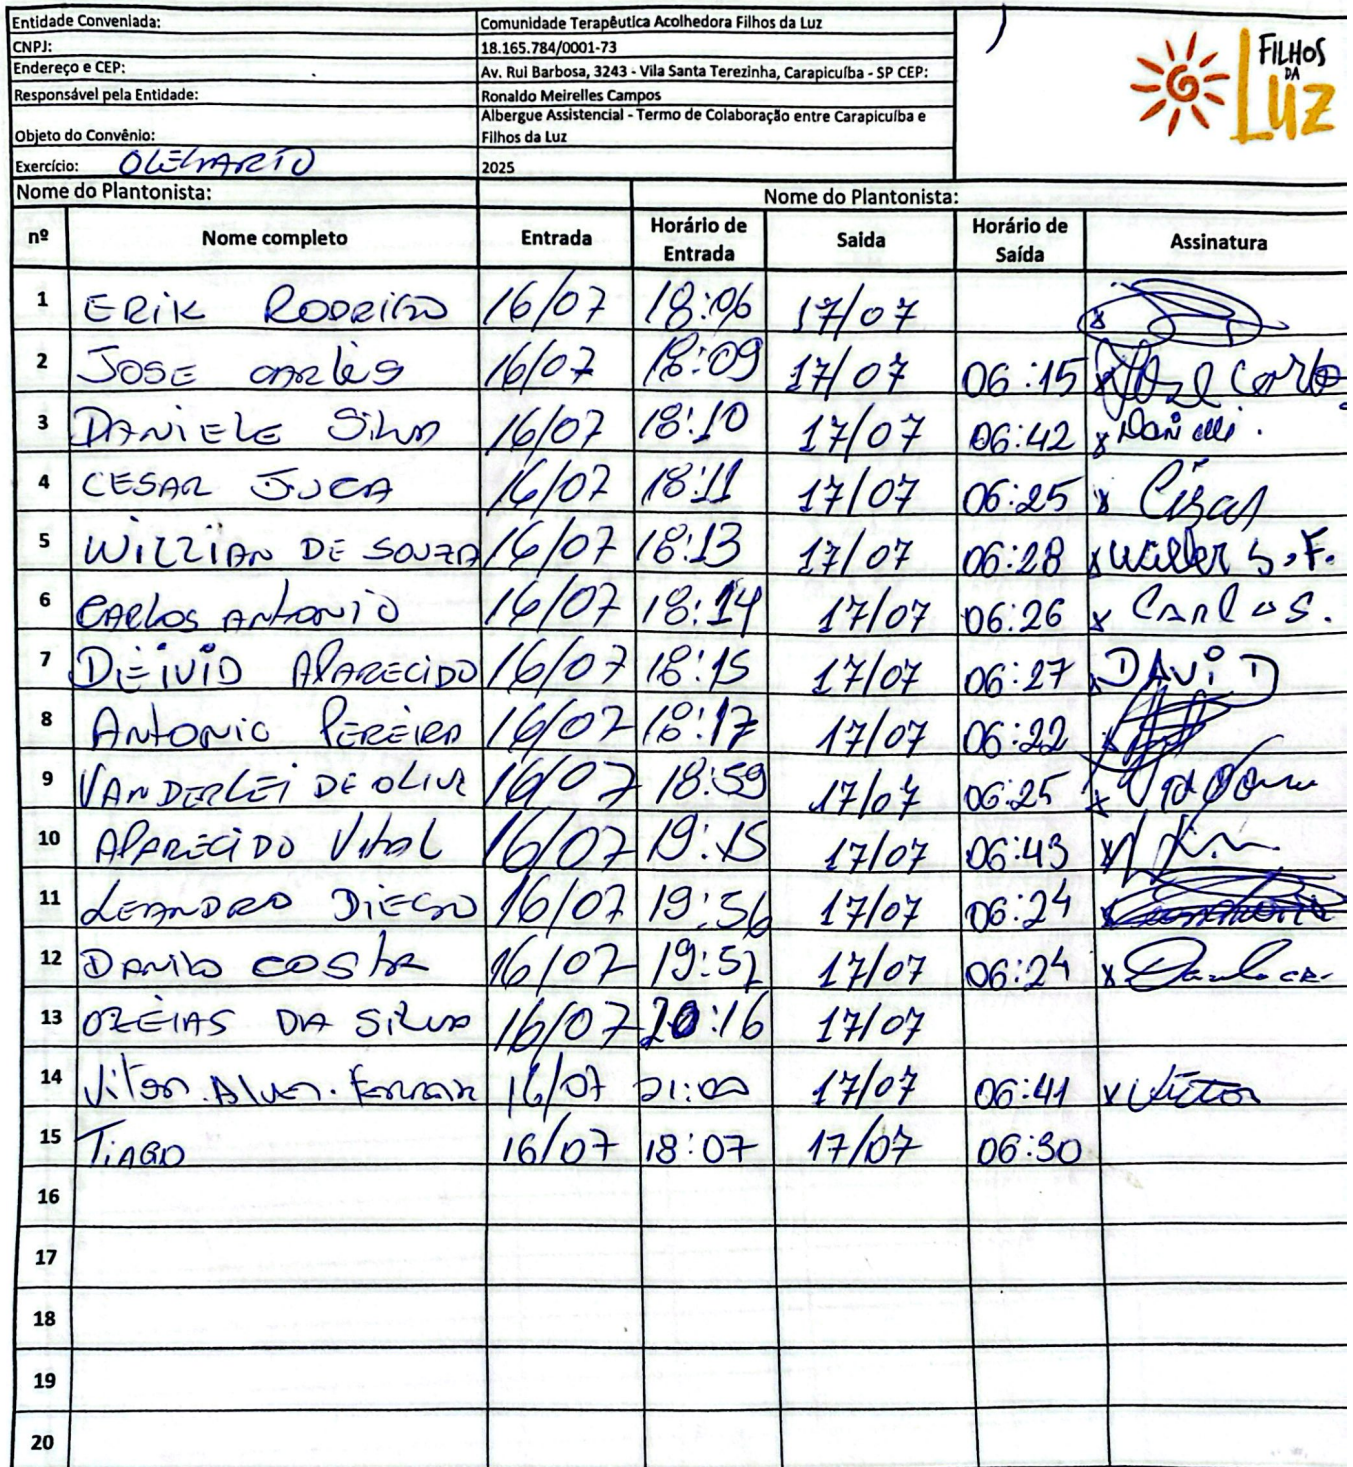 Entidade Conveniada: Comunidade Terapêutica Acolhedora Filhos da Luz
CNPJ: 18.165.784/0001-73
Endereço e CEP: Av. Rui Barbosa, 3243 - Vila Santa Terezinha, Carapicuíba - SP CEP:
Responsável pela Entidade: Ronaldo Meirelles Campos
Objeto do Convênio: Albergue Assistencial - Termo de Colaboração entre Carapicuíba e
Filhos da Luz
Exercício: 2025
FILHOS
DA
LUZ
Nome do Plantonista: Nome do Plantonista:
nº Nome completo Entrada Horário de Entrada Saida Horário de Saída Assinatura
1 ERIK RODRIGO 16/07 18:06 17/07
2 JOSE CARLOS 16/07 18:09 17/07 06:15 x José Carlo
3 DANIELE SILVA 16/07 18:10 17/07 06:42 x
4 CESAR JUCA 16/07 18:11 17/07 06:25 x
5 WILLIAN DE SOUZA 16/07 18:13 17/07 06:28 x
6 CARLOS ANTONIO 16/07 18:14 17/07 06:26 x Carlos.
7 DEIVID APARECIDO 16/07 18:15 17/07 06:27 x DAVID
8 ANTONIO PEREIRA 16/07 18:17 17/07 06:22 x
9 VANDERLEI DE OLIVE 16/07 18:59 17/07 06:25 x
10 APARECIDO Vital 16/07 19:15 17/07 06:43 x
11 LEANDRO DIEGO 16/07 19:56 17/07 06:24 x
12 DANILO COSTA 16/07 19:57 17/07 06:24 x
13 OZEIAS DA SILVA 16/07 20:16 17/07
14 Vitor. Alves. 16/07 21:00 17/07 06:41 x Victor
15 TIAGO 16/07 18:07 17/07 06:30
16
17
18
19
20